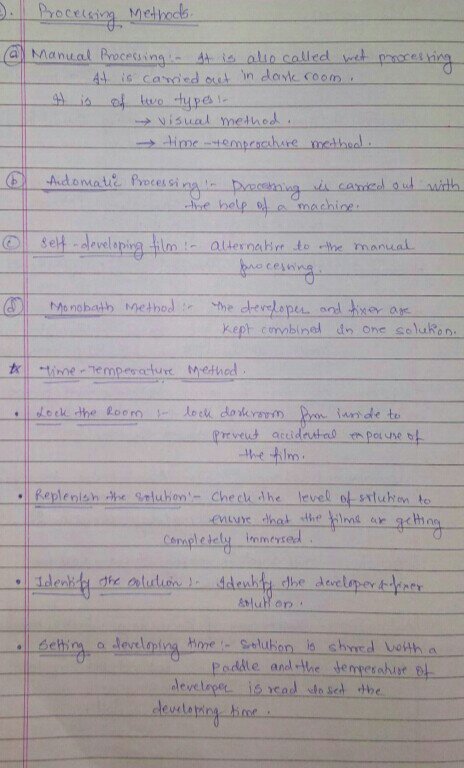 ). Processing Methods.
(a) Manual Processing :- It is also called wet processing
It is carried out in dark room.
It is of two types :-
→ visual method.
→ time-temperature method.
(b) Automatic Processing :- Processing is carried out with
the help of a machine.
(c) Self-developing film :- alternative to the manual
processing.
(d) Monobath Method :- The developer and fixer are
kept combined in one solution.
* Time-Temperature Method.
• Lock the Room :- lock darkroom from inside to
prevent accidental exposure of
the film.
• Replenish the solution :- Check the level of solution to
ensure that the films are getting
completely immersed.
• Identify the solution :- Identify the developer & fixer
solution.
• Setting a developing time :- Solution is stirred with a
paddle and the temperature of
developer is read to set the
developing time.